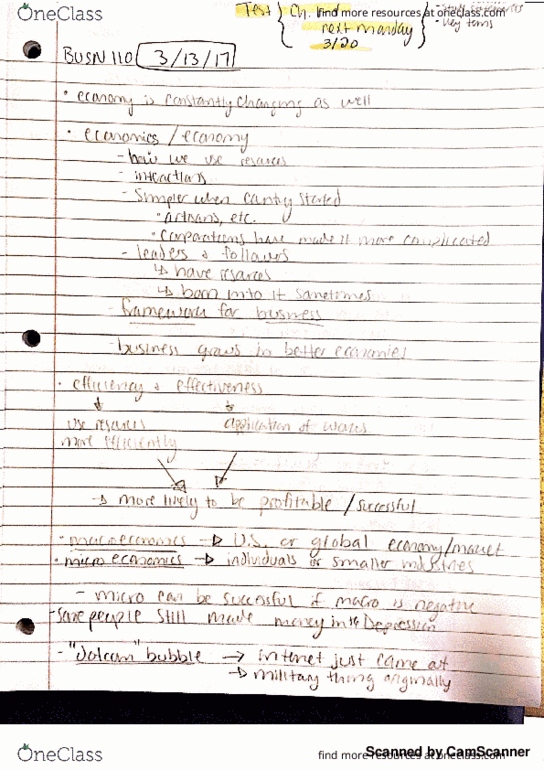 OneClass
find more resources at oneclass.com
Test { Ch.
next monday
3/20
key terms
BUSN 110 3/13/17
• economy is constantly changing as well
• economics / economy
- how we use resources
- interactions
- simpler when country started
• artisans, etc.
• corporations have made it more complicated
- leaders & followers
↳ have resources
↳ born into it sometimes
- framework for business
- business grows in better economies
• efficiency & effectiveness
use resources more efficiently
application of
→ more likely to be profitable / successful
• macroeconomics → U.S. or global economy/market
• micro economics → individuals or smaller industries
- micro can be successful if macro is negative
- some people still made money in Depression
- "dotcom" bubble → internet just came out
→ military thing originally
OneClass
find more resources at oneclass.com
Scanned by CamScanner